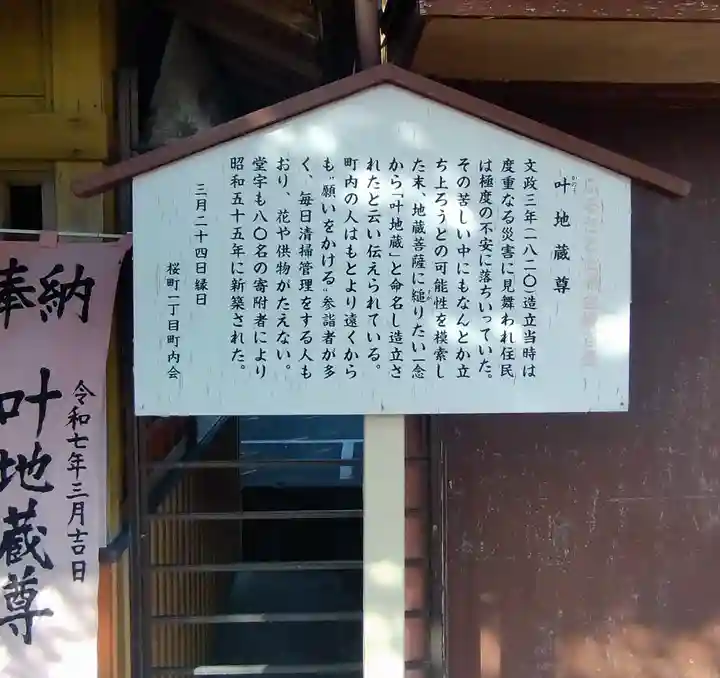 叶地蔵尊
かのう
文政三年(一八二〇)造立当時は
度重なる災害に見舞われ住民
は極度の不安に落ちいっていた。
その苦しい中にもなんとか立
ち上ろうとの可能性を模索し
た末、地蔵菩薩に縋りたい一念
すが
から「叶地蔵」と命名し造立さ
れたと云い伝えられている。
町内の人はもとより遠くから
も"願いをかける"参詣者が多
く、毎日清掃管理をする人も
おり、花や供物がたえない。
堂宇も八〇名の寄附者により
昭和五十五年に新築された。
三月二十四日縁日
桜町一丁目町内会
奉納
叶地蔵尊
令和七年三月吉日